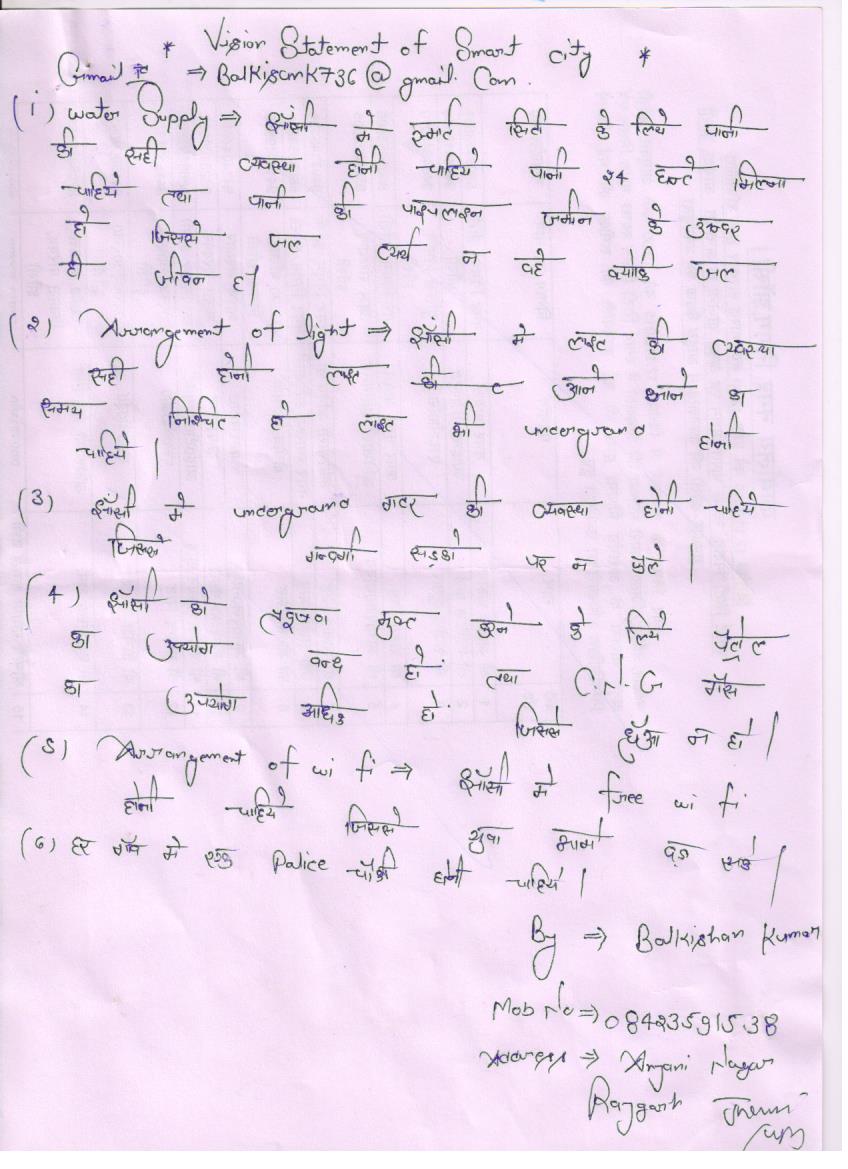 * Vision Statement of Smart city *
Gmail ⇒ Balkisank736@gmail.Com
(1) water Supply ⇒ झाँसी मे स्मार्ट सिटी के लिये पानी
की सही व्यवस्था होनी चाहिये पानी 24 घन्टे मिलना
चाहिये तथा पानी की पाइपलाइन जमीन के अन्दर
हो जिससे जल व्यर्थ न बहे क्योकि जल
ही जीवन है।
(2) Arrangement of light ⇒ झाँसी मे लाइट की व्यवस्था
सही होनी लाइट की आने जाने का
समय निश्चित हो लाइट भी underground होनी
चाहिये।
(3) झाँसी मे underground गटर की व्यवस्था होनी चाहिये
जिससे गन्दगी सड़को पर न फैले।
(4) झाँसी को प्रदूषण मुक्त करने के लिये पेट्रोल
का उपयोग बन्द हो तथा C.N.G गैस
का उपयोग अधिक हो जिससे धुँआ न हो।
(5) Arrangement of wi fi ⇒ झाँसी मे free wi fi
होनी चाहिये जिससे युवा आगे बढ़ सके।
(6) हर गाँव मे एक Police चौकी होनी चाहिये।
By ⇒ Balkishan Kumar
Mob No ⇒ 08423591538
Address ⇒ Anjani Nagar
Rajgarh Jhansi
(UP)